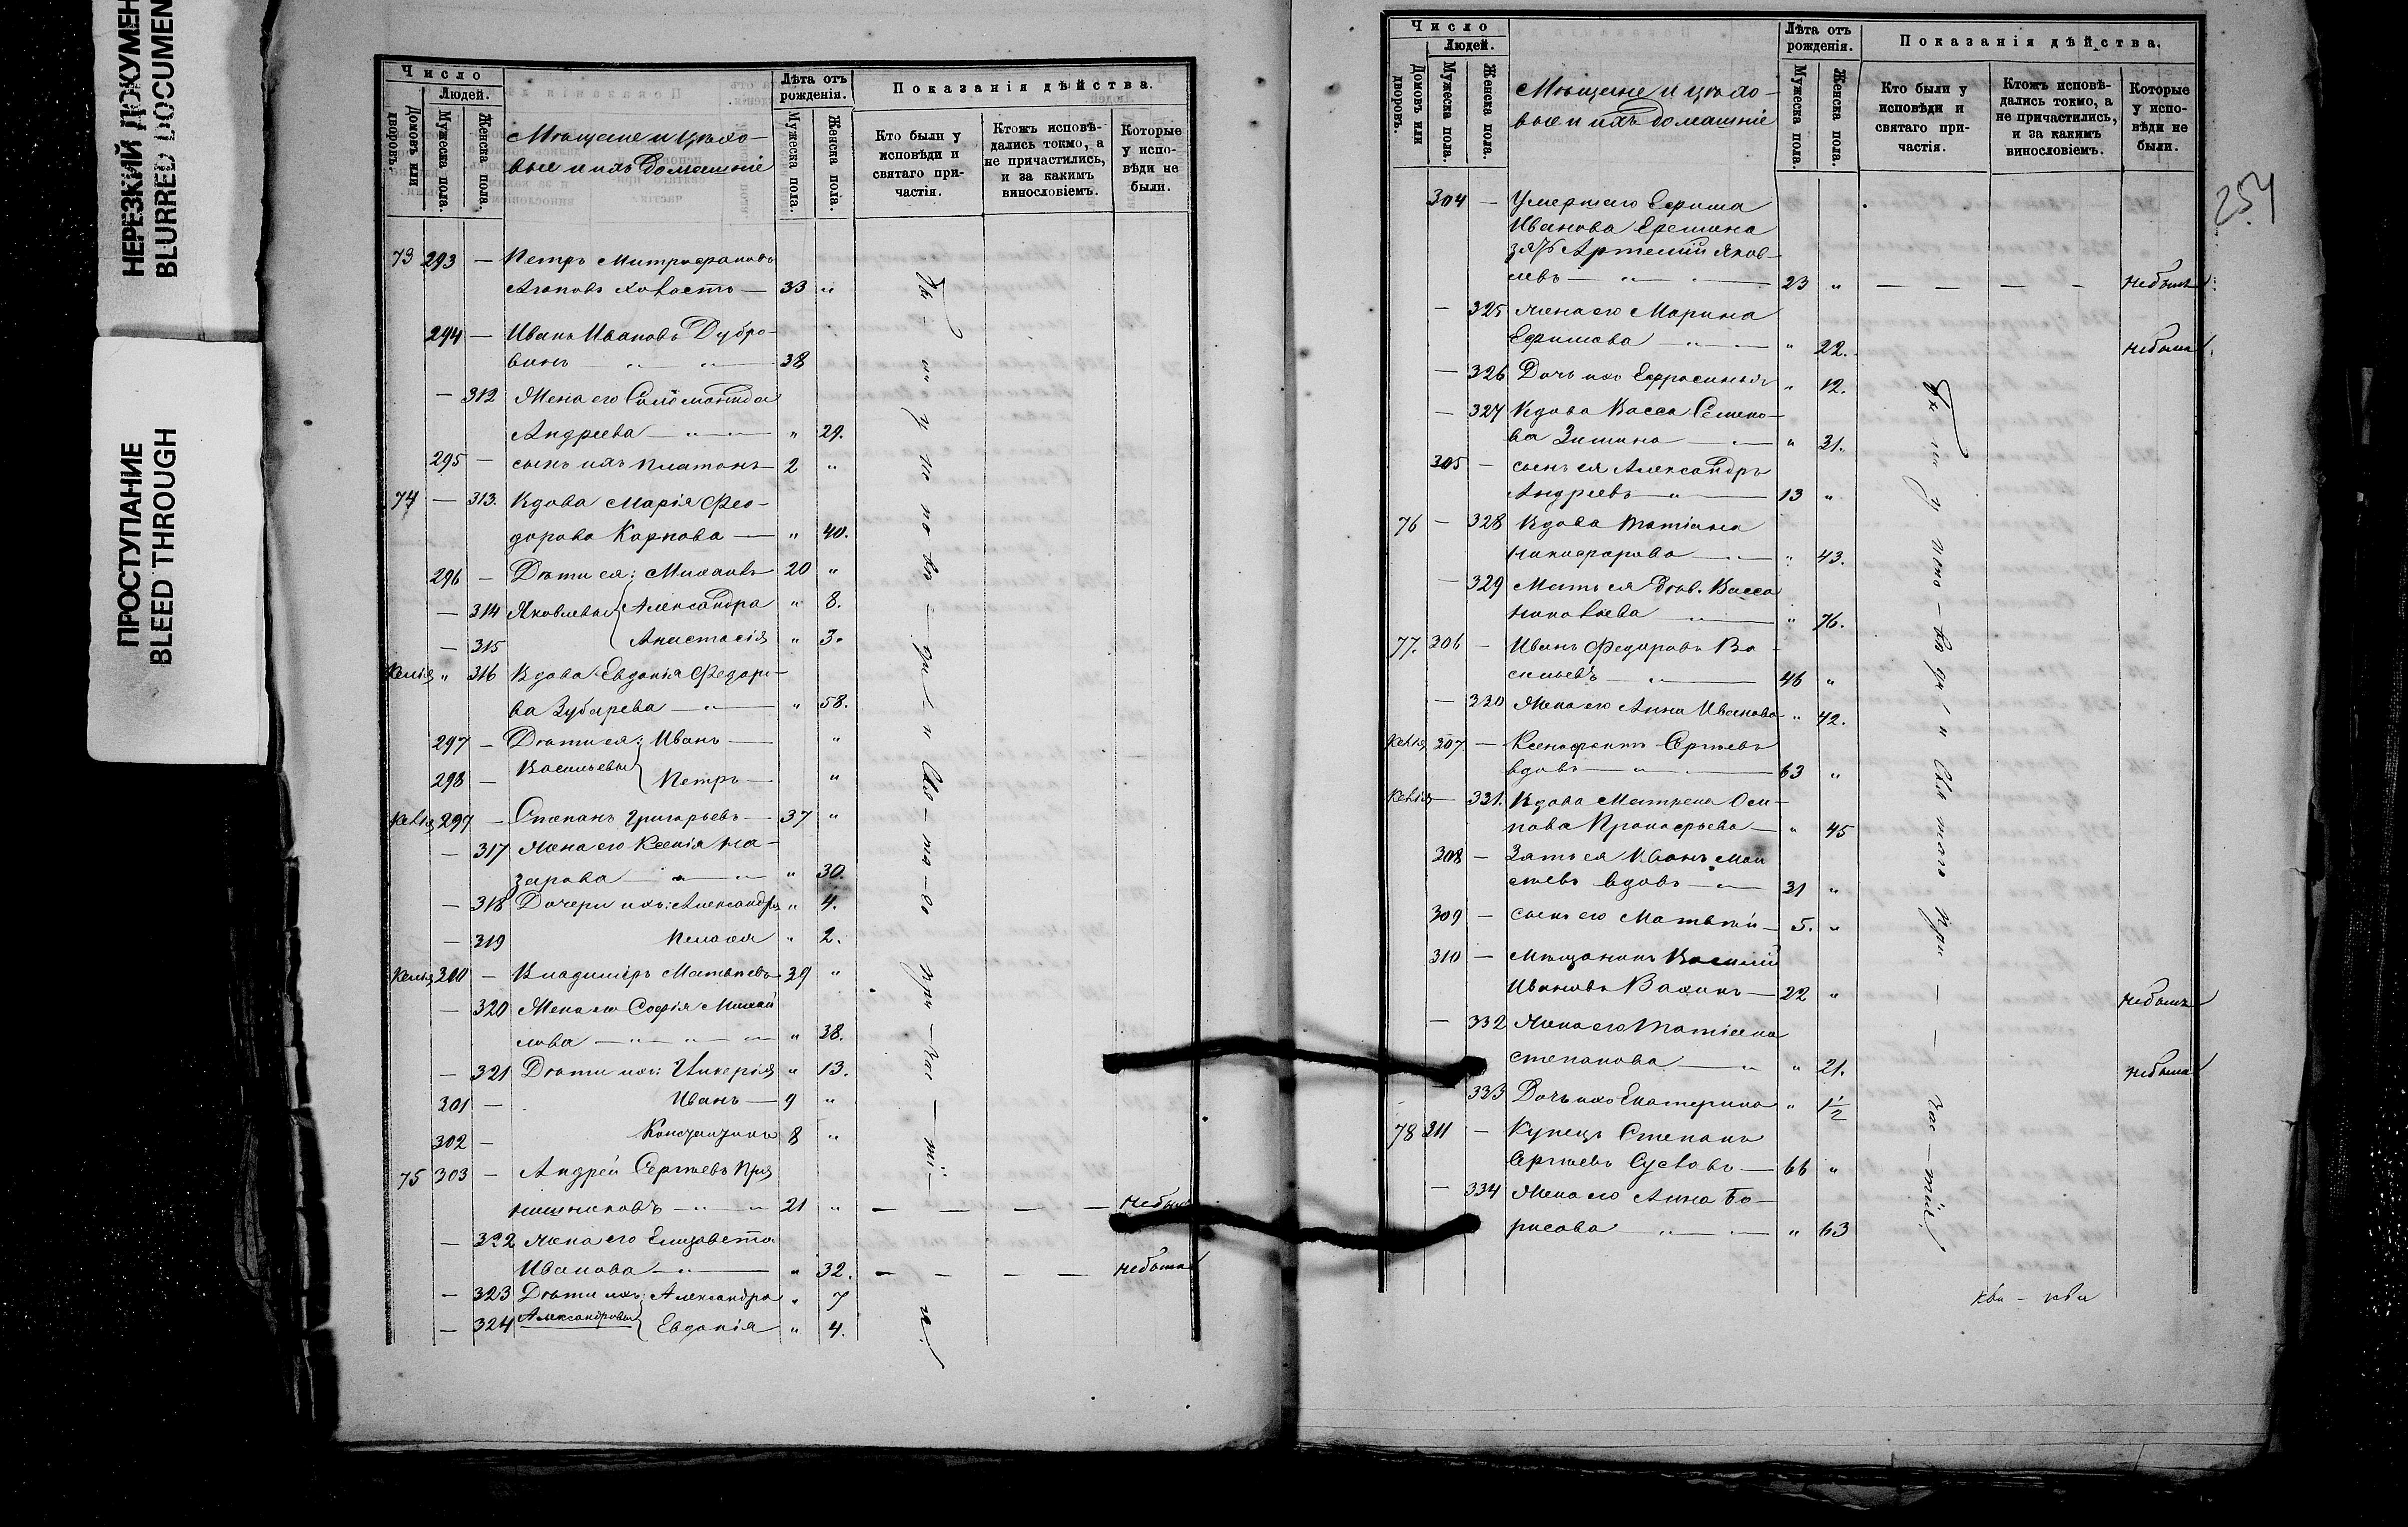 НЕРЕЗКИЙ ДОКУМЕН
BLURRED DOCUMEN
ПРОСТУПАНИЕ
BLEED THROUGH
Число
Людей.
Домовъ или дворовъ.
Мужеска пола.
Женска пола.
Мѣщане и цѣхо-
вые и ихъ домашніе
Лѣта отъ рожденія.
Мужеска пола.
Женска пола.
Показанія дѣйства.
Кто были у исповѣди и святаго при-частія.
Ктожъ исповѣ-дались токмо, а не причастились, и за какимъ винословіемъ.
Которые у испо-вѣди не были.
73 293 — Петръ Митрофановъ
Агаповъ холостъ — 33 "
294 — Иванъ Ивановъ Дубро-
винъ — " — " — 38
— 312 Жена его Соломонида
Андреева — " — " 29.
295 — сынъ ихъ Платонъ — 2 "
74 — 313. Вдова Марія Фео-
дорова Карпова — " 40.
296 — Дѣти ея: Михаилъ — 20 "
— 314 Яковлевы { Александра " 8.
— 315 Анастасія " 3.
Келія " 316 Вдова Евдокія Федоро-
ва Зубарева — " — " 58.
297 — Дѣти ея: Иванъ — "
298 — Васильевы { Петръ — "
Келія 299 — Степанъ Григорьевъ — 37 "
— 317 Жена его Ксенія На-
зарова — " — " 30.
— 318 Дочери ихъ: Александра " 4.
— 319 Пелагея " 2.
Келія 300 — Владиміръ Матвѣевъ — 39 "
— 320 Жена его Софія Михай
лова — " — " — " 38.
— 321 Дѣти ихъ: Гликерія " 13.
301 — Иванъ — 9 "
302 — Константинъ 8 "
75 303 — Андрей Сергѣевъ Пря
нишниковъ — " — " 21 " — — — — не былъ
— 322 Жена его Елизавета
Иванова — " — " 32. — — — — не была
— 323 Дѣти ихъ: Александра " 7
— 324 Александровы { Евдокія " 4.
Число
Людей.
Домовъ или дворовъ.
Мужеска пола.
Женска пола.
Мѣщане и цѣхо-
вые и ихъ домашніе
Лѣта отъ рожденія.
Мужеска пола.
Женска пола.
Показанія дѣйства.
Кто были у исповѣди и святаго при-частія.
Ктожъ исповѣ-дались токмо, а не причастились, и за какимъ винословіемъ.
Которые у испо-вѣди не были.
254
304 — Умершаго Ефима
Иванова Еремина
зять Артемій Яков-
левъ — " — " — 23 " — — — — не былъ
— 325 Жена его Марина
Ефимова — " — " 22. не была
— 326 Дочь ихъ Ефросинія " 12.
— 327 Вдова Васса Семено-
ва Зимина — " — " 31.
305 — сынъ ея Александръ
Андреевъ — " — 13 "
76 — 328 Вдова Татіана
Никифорова — " — " 43.
— 329 Мать ея вдов. Васса
Николаева — " — " 76.
77. 306 — Иванъ Федоровъ Ва-
сильевъ — " — 46 "
— 330 Жена его Анна Иванова " 42.
Келія 307 — Ксенофонтъ Сергѣевъ
вдовъ — " — 63 "
Келія — 331. Вдова Матрена Оси-
пова Прокофьева — " 45
308 — Зять ея Иванъ Мои
сеевъ вдовъ — " — 31 "
309 — сынъ его Матвѣй — 5. "
310 — Мѣщанинъ Василій
Ивановъ — 22 " не былъ
— 332 Жена его Татіана
Степанова — " — " 21. не была
333 Дочь ихъ Екатерина " 1½
78 311 — Купецъ Степанъ
Сергѣевъ Сусловъ — 66 "
— 334 Жена его Анна Бо-
рисова — " — " 63